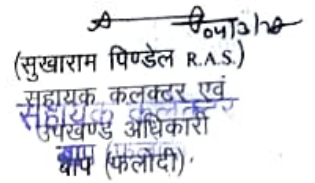 (सुखाराम पिण्डेल R.A.S.)
सहायक कलक्टर एवं
उपखण्ड अधिकारी
बाप (फलोदी)